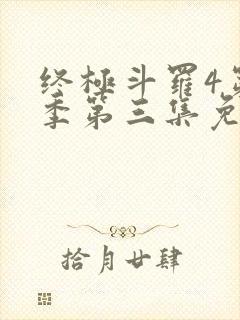 终極斗羅4第
季第三集免
拾月廿肆